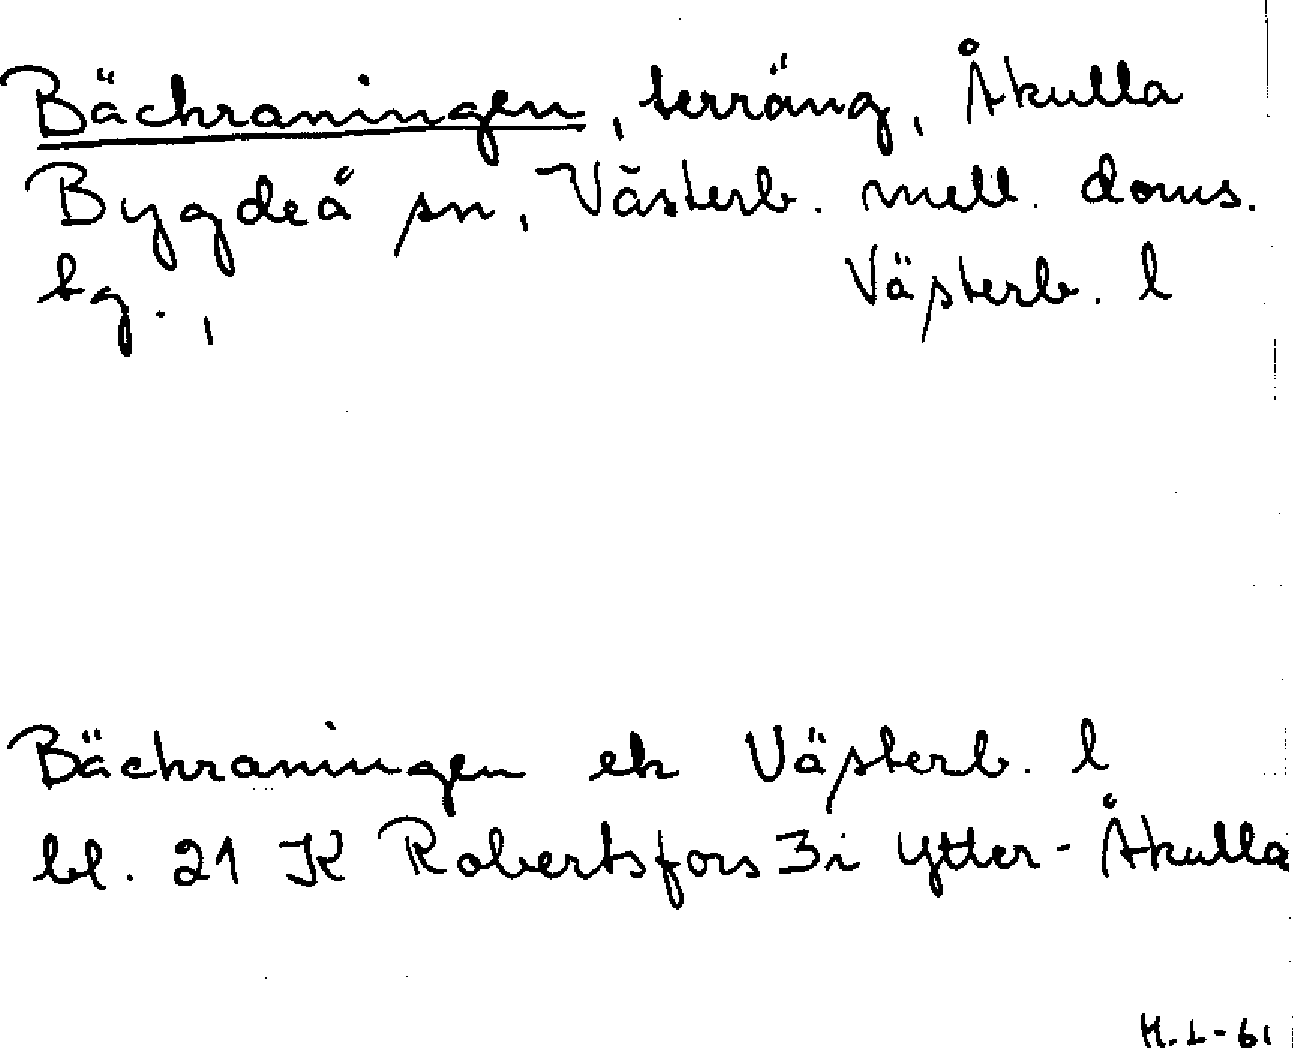 Bäckraningen, terräng, Åkulla
Bygdeå sn, Västerb. mell. doms.
bg., Västerb. l
Bäckraningen ek Västerb. l
bl. 21 K Robertsfors 3i Ytter-Åkulla
H.L-61